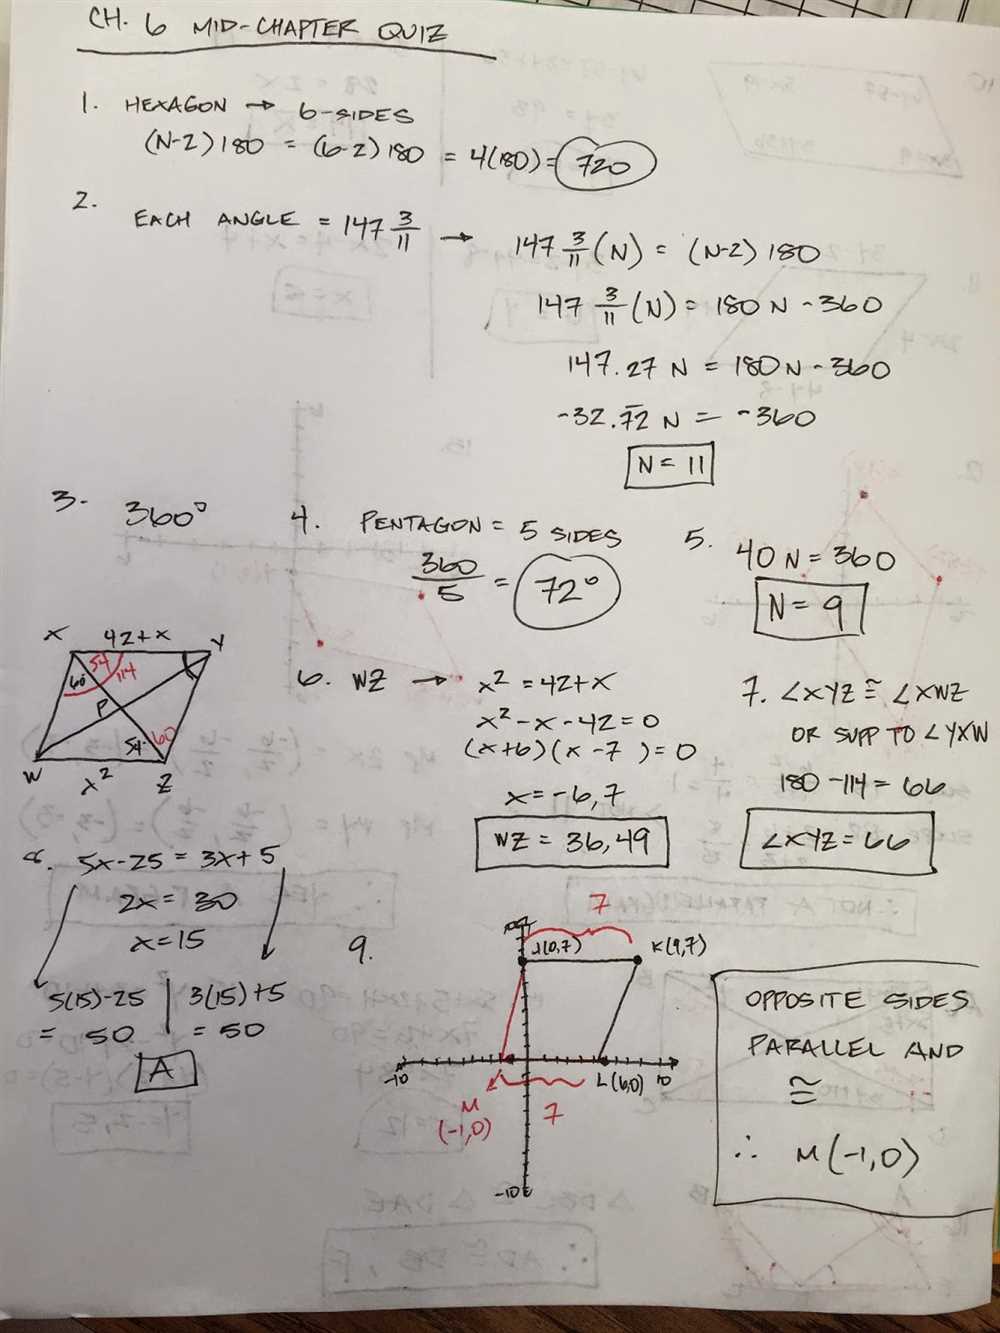 CH. 6 MID-CHAPTER QUIZ
1. HEXAGON → 6-SIDES
(N-2)180 = (6-2)180 = 4(180) = 720
2.
EACH ANGLE = 147 3/11 → 147 3/11 (N) = (N-2) 180
147 3/11 (N) = 180 N - 360
147.27 N = 180N - 360
-32.7̅2 N = -360
N = 11
3. 360°
4. PENTAGON = 5 SIDES
360/5 = 72°
5. 40 N = 360
N = 9
X 42+X Y
60 54 114
P
54 60
W X² Z
6. WZ → X² = 42+X
X² - X - 42 = 0
(X+6)(X-7) = 0
X = -6,7
WZ = 36,49
7. ∠XYZ ≅ ∠XWZ
OR SUPP TO ∠YXW
180 - 114 = 66
∠XYZ = 66
8. 5X-25 = 3X+5
2X = 30
X = 15
5(15)-25 | 3(15)+5
= 50 | = 50
A
9.
7
J(0,7) K(9,7)
-10 L(6,0) 10
M 7
(-1,0)
-10
OPPOSITE SIDES
PARALLEL AND
≅
∴ M(-1,0)